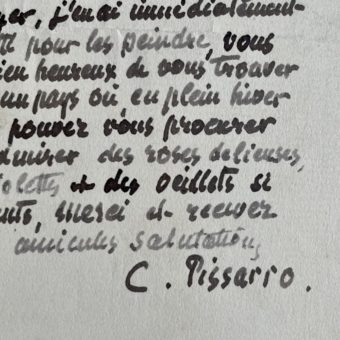 j'en ai immédiatement
pour les peindre, vous
heureux de vous trouver
un pays où, en plein hiver
pouvez vous procurer
des roses délicieuses,
et des oeillets si
merci et recevez
amicales salutations,
C. Pissarro.